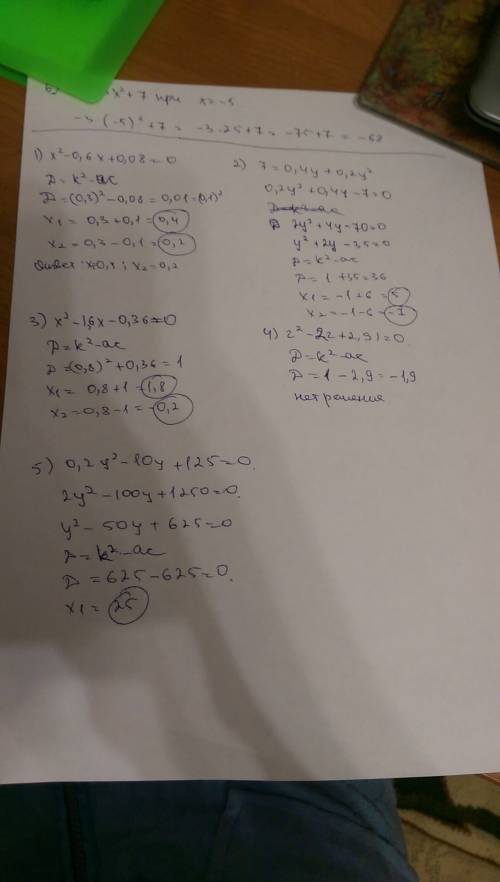 x²+7 при x=-5
-3·(-5)²+7= -3·25+7= -75+7= -68
1) x²-0,6x+0,08=0
D=k²-ac
D=(0,3)²-0,08=0,01=(0,1)²
x1= 0,3+0,1=0,4
x2=0,3-0,1=0,2
Ответ: x2=0,2
2) 7=0,4y+0,2y²
0,2y²+0,4y-7=0
D=k²-ac
2y²+4y-70=0
y²+2y-35=0
D=k²-ac
D=1+35=36
x1=-1+6=5
x2=-1-6=-7
3) x²-1,6x-0,36=0
D=k²-ac
D=(0,8)²+0,36=1
x1= 0,8+1=1,8
x2=0,8-1=-0,2
4) z²-2z+2,91=0
D=k²-ac
D=1-2,9=-1,9
нет решения
5) 0,2y²-10y+125=0.
2y²-100y+1250=0.
y²-50y+625=0
D=k²-ac
D=625-625=0.
x1=25